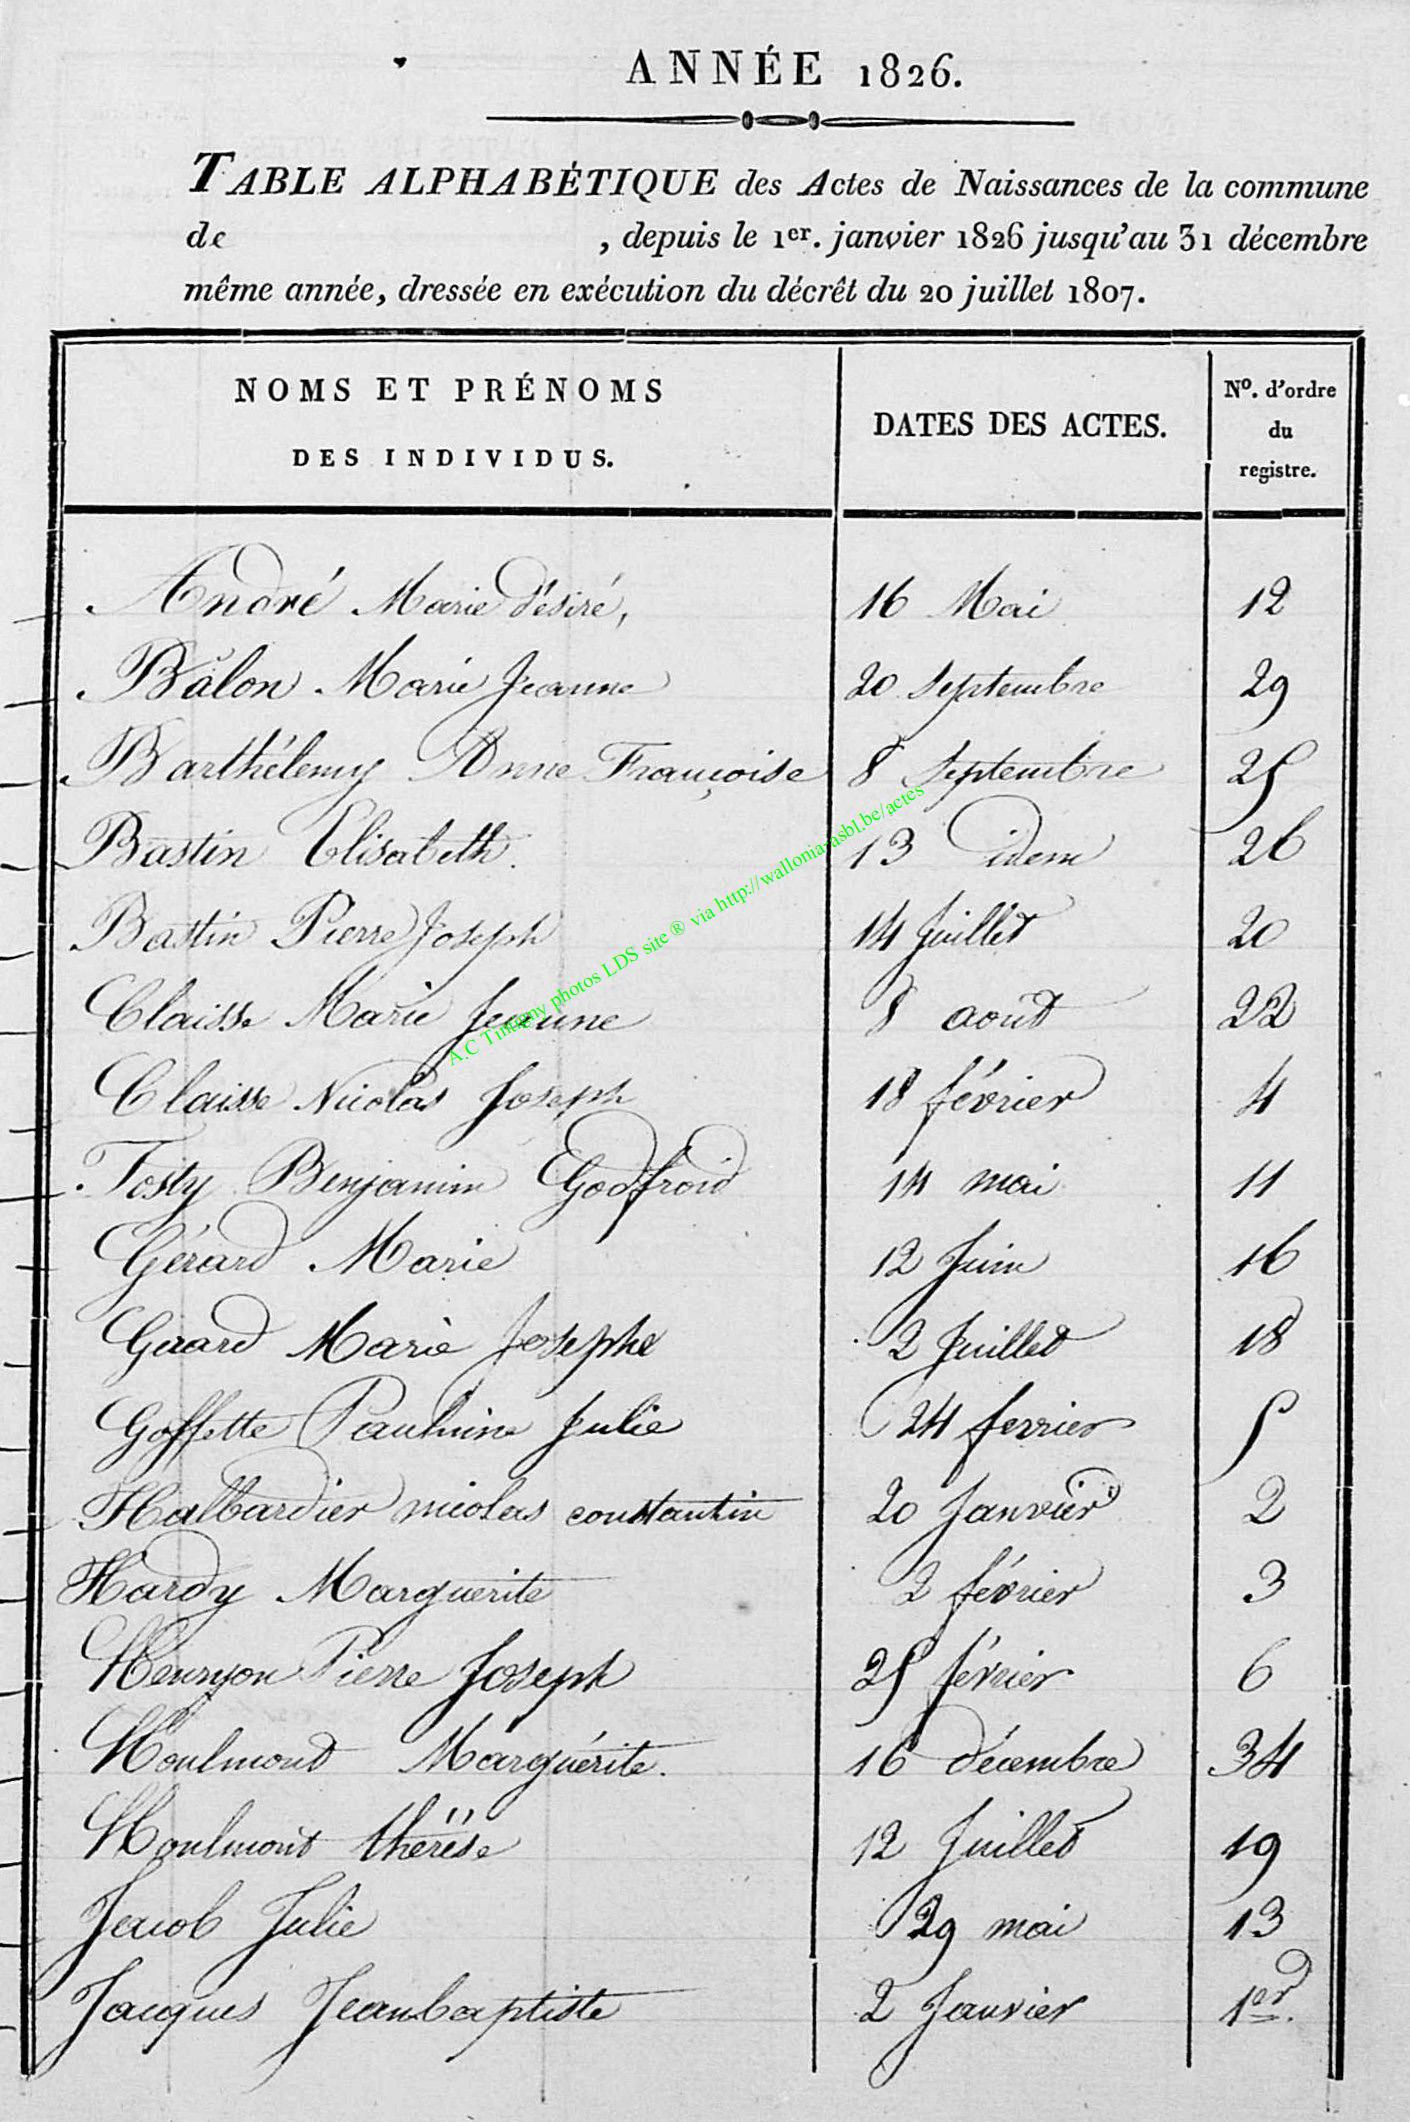 ANNÉE 1826.
TABLE ALPHABÉTIQUE des Actes de Naissances de la commune
de , depuis le 1er. janvier 1826 jusqu'au 31 décembre
même année, dressée en exécution du décrêt du 20 juillet 1807.
NOMS ET PRÉNOMS DES INDIVIDUS. DATES DES ACTES. No. d'ordre du registre.
André Marie Désiré, 16 Mai 12
Balon Marie Jeanne 20 Septembre 29
Barthélemy Anne Françoise 8 Septembre 25
Bastin Elisabeth. 13 idem 26
Bastin Pierre Joseph 14 Juillet 20
Claisse Marie Jeanne 8 aout 22
Claisse Nicolas Joseph 18 février 4
Fosty Benjamin Godfroid 14 mai 11
Gérard Marie 12 Juin 16
Gérard Marie Josephe 2 Juillet 18
Goffette Pauline Julie 24 fevrier 5
Halbardier nicolas constantin 20 Janvier 2
Hardy Marguerite 2 février 3
Henryon Pierre Joseph 25 février 6
Houlmont Marguérite. 16 décembre 34
Houlmont thérèse 12 Juillet 19
Jacob Julie 29 mai 13
Jacques Jeanbaptiste 2 Janvier 1er.
A.C Tintigny photos LDS site ® via http://wallonia-asbl.be/actes